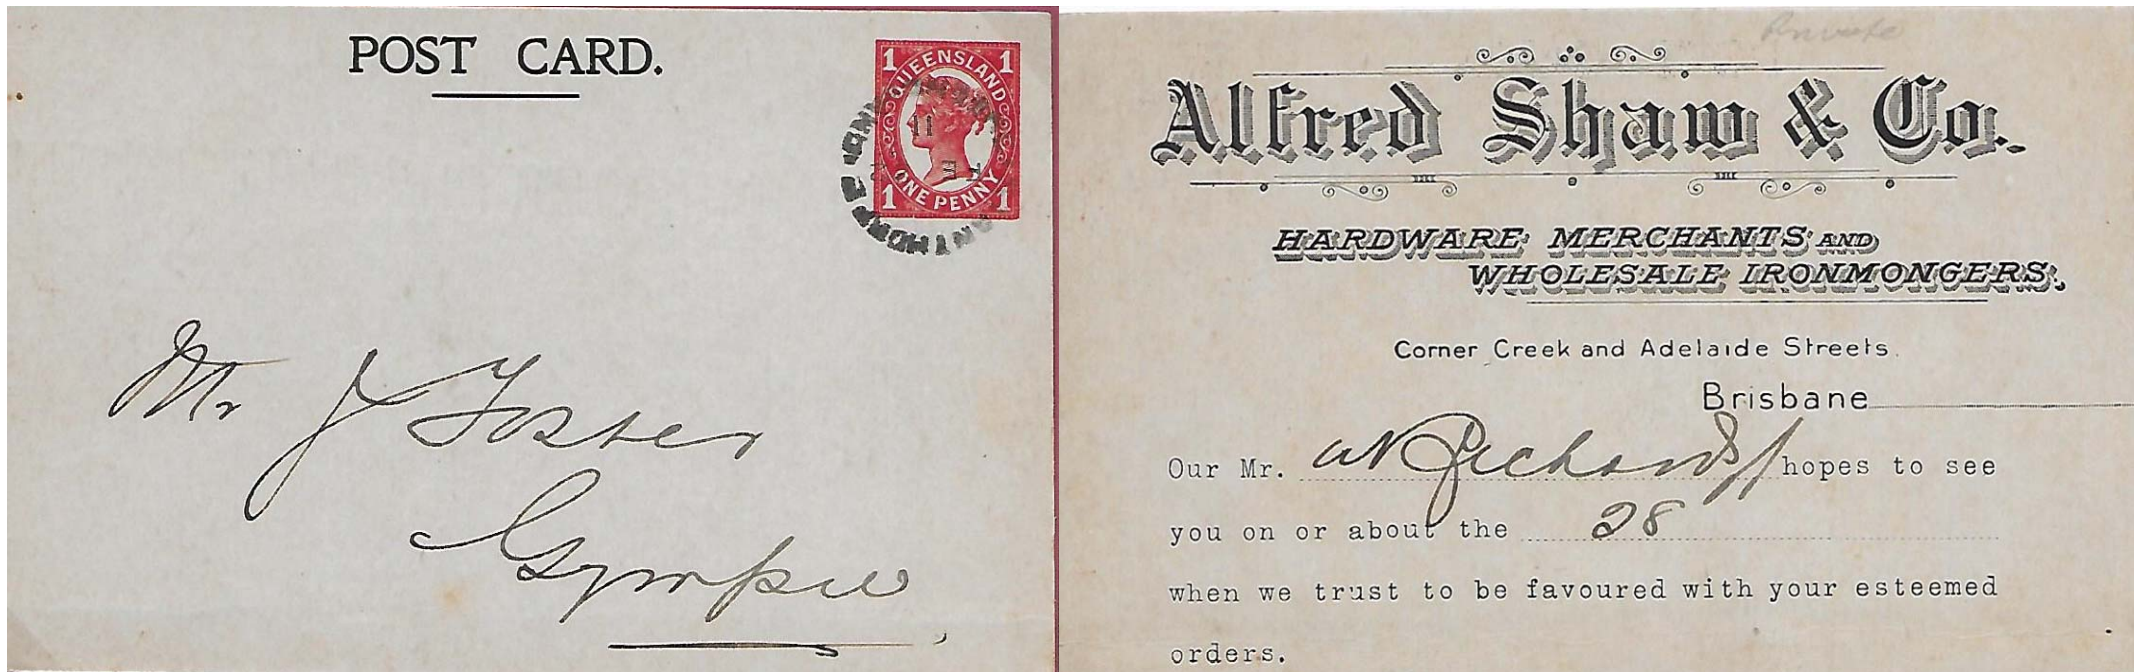 POST CARD.
1 QUEENSLAND 1
11
1 ONE PENNY 1
Mr J Foster
Gympie
Private
Alfred Shaw & Co.
HARDWARE MERCHANTS AND
WHOLESALE IRONMONGERS.
Corner Creek and Adelaide Streets.
Brisbane
Our Mr. W Richards hopes to see
you on or about the 28
when we trust to be favoured with your esteemed
orders.